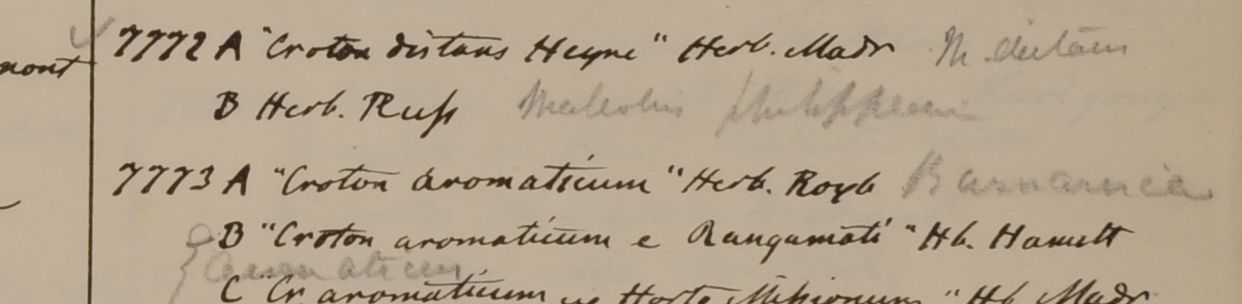 7772 A "Croton distans Heyne" Herb. Madr M. distans
mont
B Herb. Russ Mallotus philippensis
7773 A "Croton aromaticum" Herb. Roxb
B "Croton aromaticum e Rangamati" Hb. Hamilt
aromaticum
C "Cr aromaticum ex Horto Missionum" Hb Madr